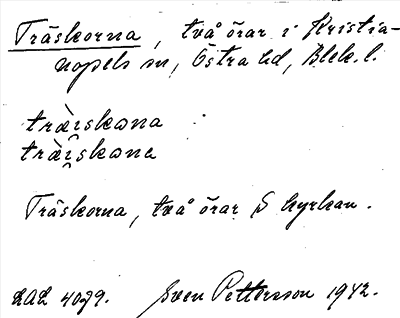 Träskorna, två örar i Kristia-
nopels sn, Östra hd, Blek. l.
træ̀i̯skɷna
træ̀i̯skɷnɐ
Träskorna, två örar S kyrkan.
LAL 4099. Sven Pettersson 1942.